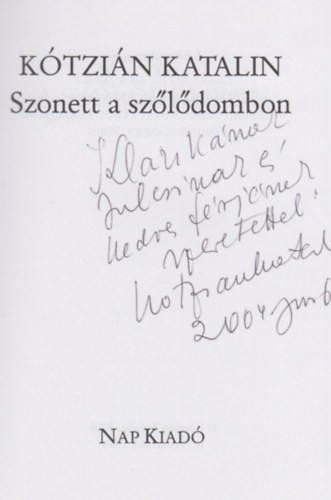 KÓTZIÁN KATALIN
Szonett a szőlődombon
Klárikának
Julcsinak és
kedves férjének
szeretettel:
Kotzian Katalin
2004 jun 6
NAP KIADÓ